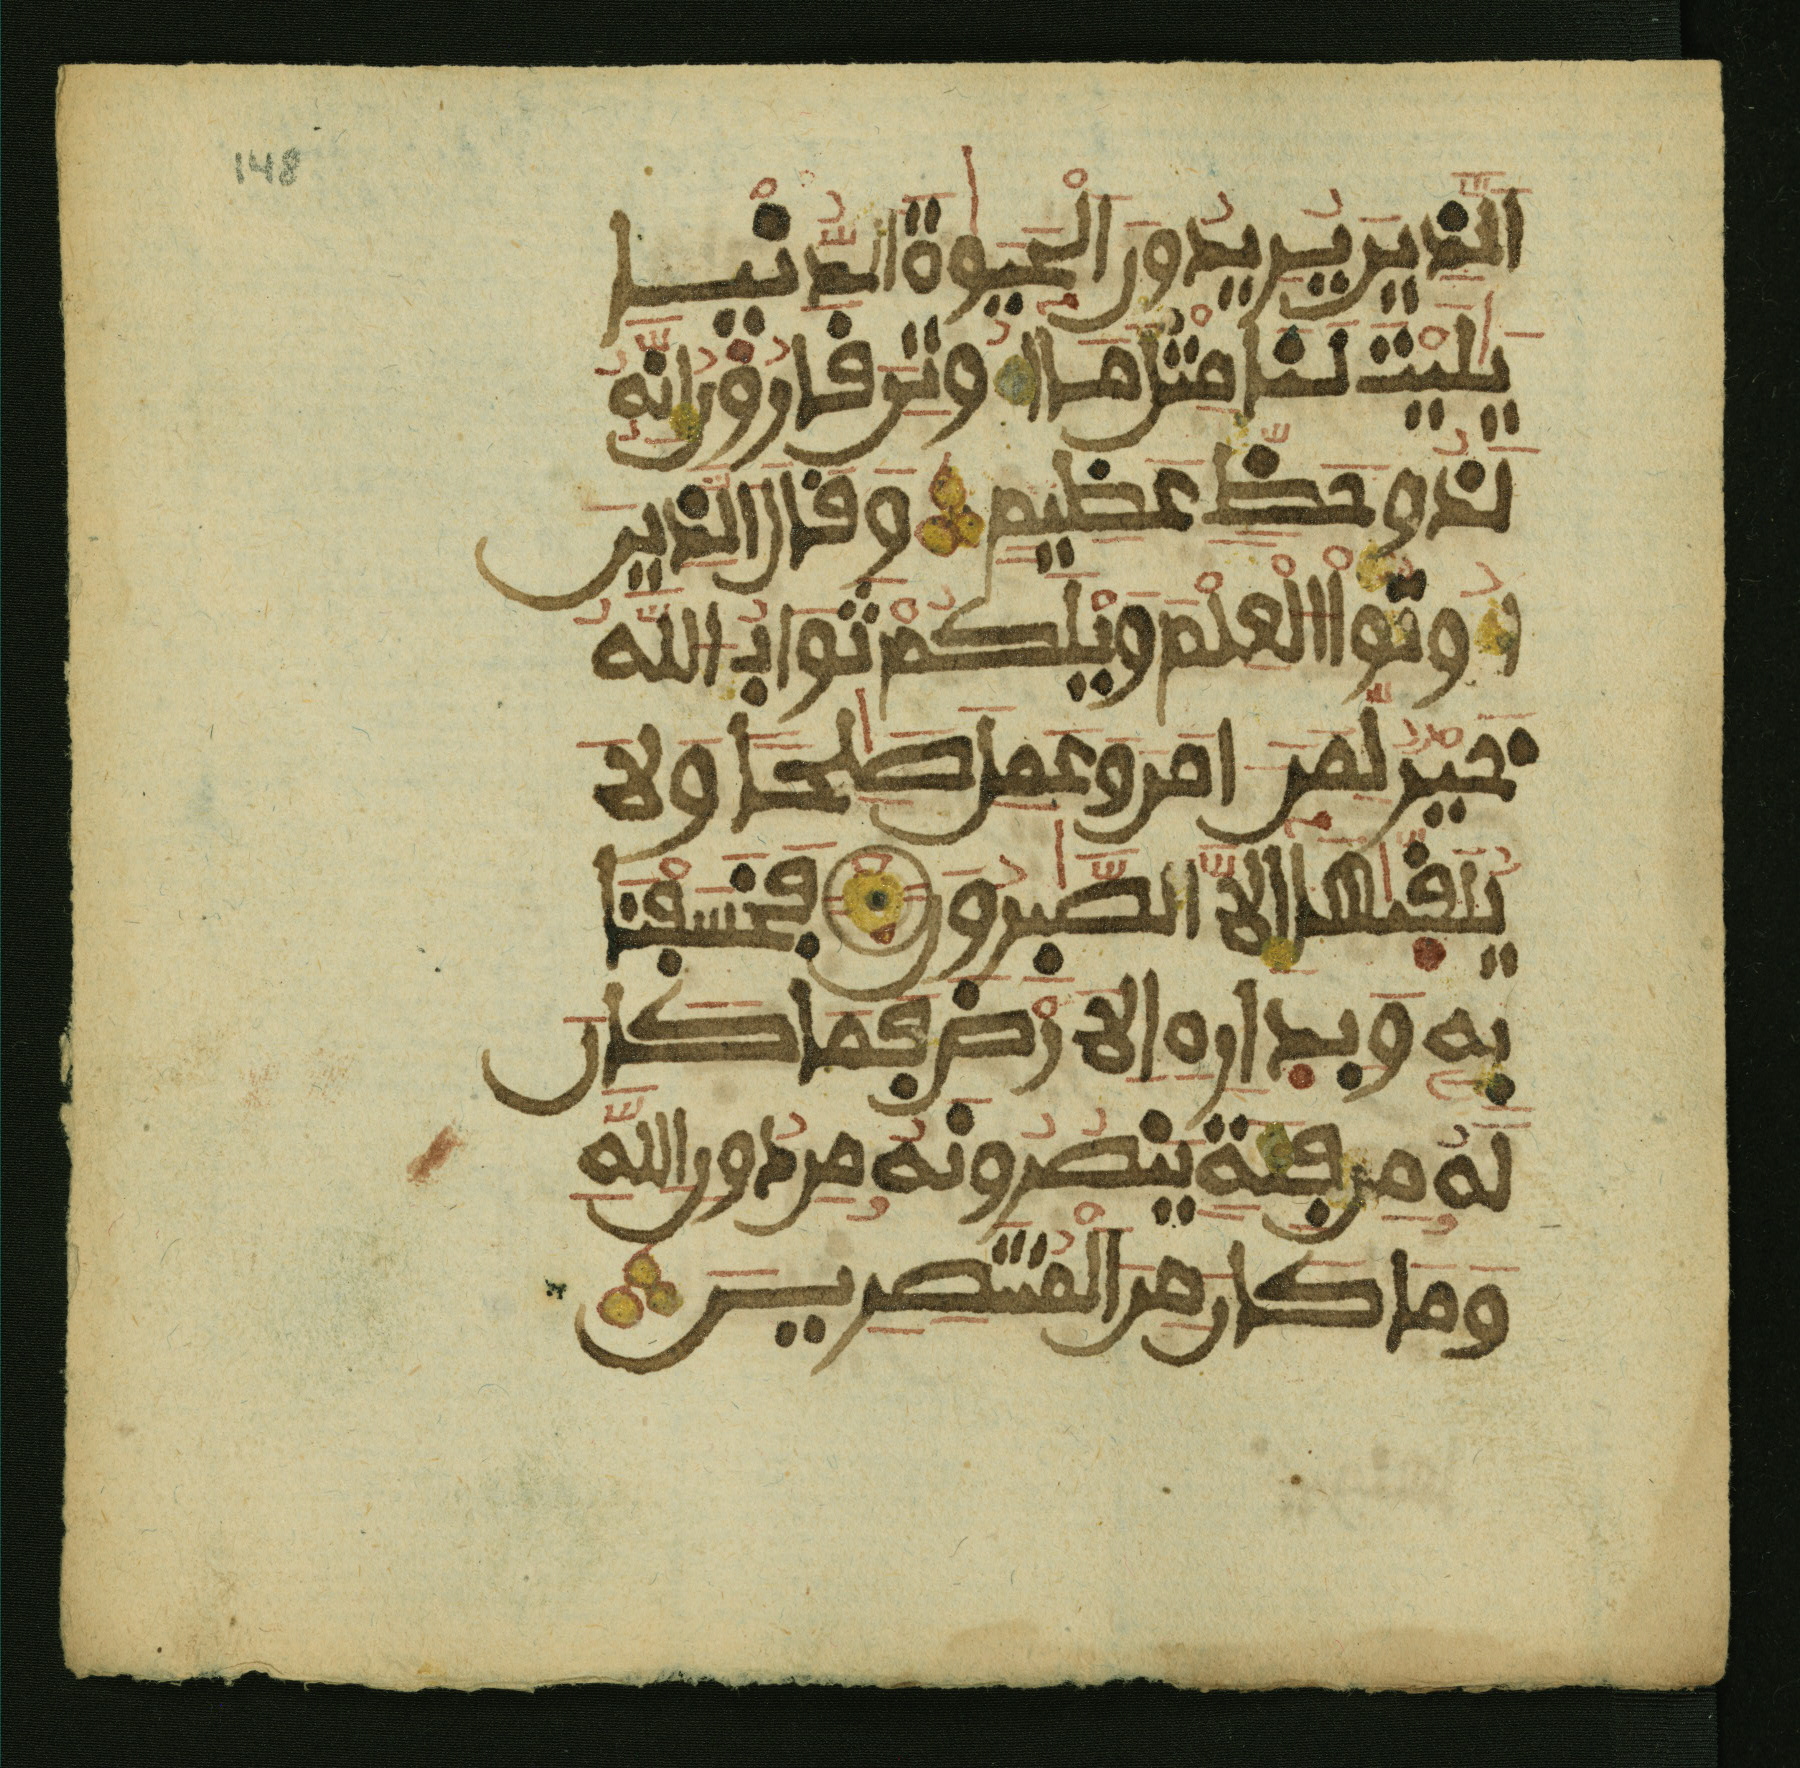 148
الَّذِينَ يُرِيدُونَ الْحَيَوٰةَ الدُّنْيَا
يَٰلَيْتَ لَنَا مِثْلَ مَا اُوتِيَ قَٰرُونُ إِنَّهُ
لَذُو حَظٍّ عَظِيمٍ وَقَالَ الَّذِينَ
اُوتُواْ الْعِلْمَ وَيْلَكُمْ ثَوَابُ اللَّهِ
خَيْرٌ لِّمَنَ اٰمَنَ وَعَمِلَ صَٰلِحًا وَلَا
يُلَقَّيٰهَا إِلَّا الصَّٰبِرُونَ فَخَسَفْنَا
بِهِ وَبِدَارِهِ الْاَرْضَ فَمَا كَانَ
لَهُ مِن فِئَةٍ يَنصُرُونَهُ مِن دُونِ اللَّهِ
وَمَا كَانَ مِنَ الْمُنتَصِرِينَ